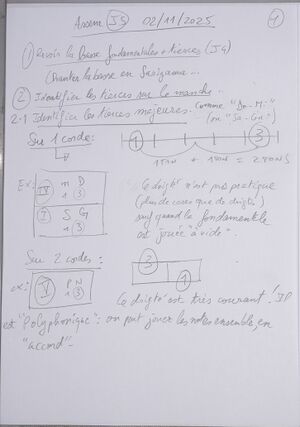 Assem JS 02/11/2025 1
1 Revoir la Basse fondamentale + tierces (JG)
Chanter la basse en Sargama...
2 Identifier les tierces sur le manche.
2-1 Identifier les tierces majeures. Comme "Do-Mi"
(ou "Sa-Ga")
Sur 1 corde: 1 3
1 TON + 1 TON = 2 TONS
Ex: IV m D
1 3
I S G
1 3
Ce doigté n'est pas pratique
(plus de cases que de doigts)
sauf quand la fondamentale
est jouée "à vide".
Sur 2 cordes:
ex: V P N
1 3
3
1
Ce doigté est très courant! Il
est "Polyphonique": on peut jouer les notes ensemble, en
"accord".